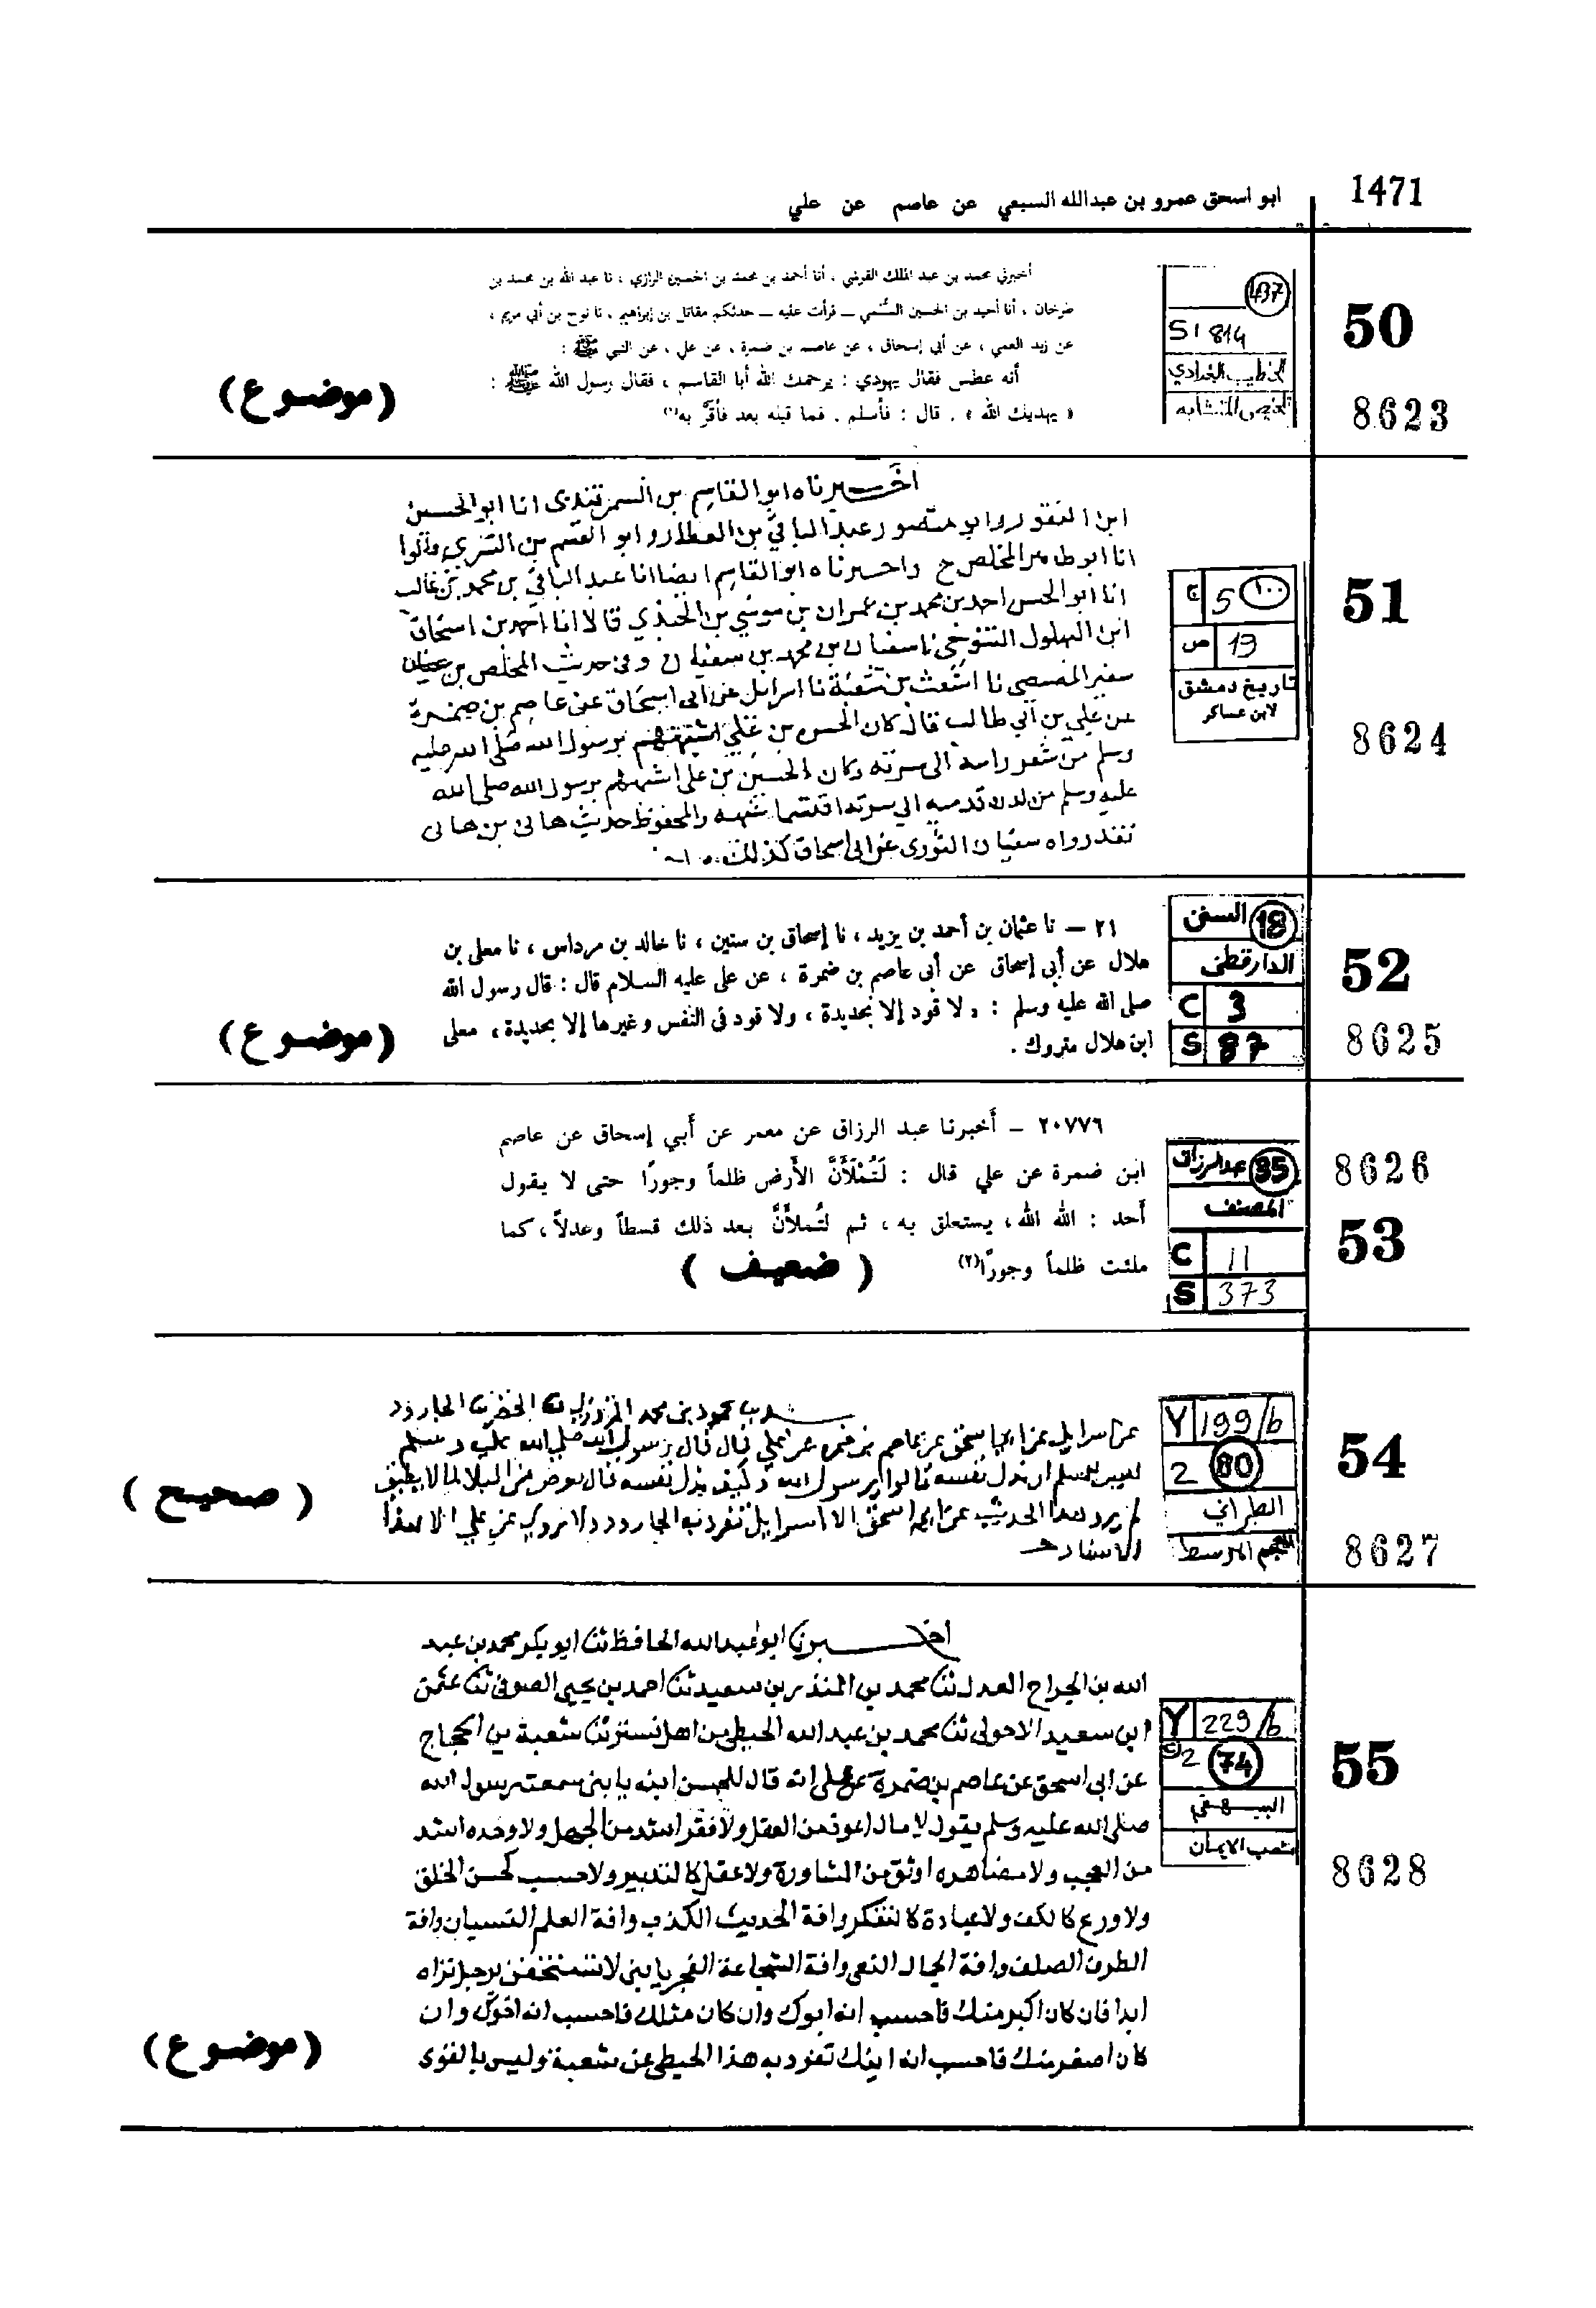 1471
ابو اسحق عمرو بن عبدالله السبعي عن عاصم عن علي
50
8623
437
S1 814
الخطيب البغدادي
تلخيص المتشابه
أخبرني محمد بن عبد الملك القرشي ، أنا أحمد بن محمد بن الحسين الرازي ، نا عبد الله بن محمد بن
طرخان ، أنا أحيد بن الحسين السلمي – قرأت عليه – حدثكم مقاتل بن إبراهيم ، نا نوح بن أبي مريم ،
عن زيد العمي ، عن أبي إسحاق ، عن عاصم بن ضمرة ، عن علي ، عن النبي ﷺ :
أنه عطس فقال يهودي : يرحمك الله أبا القاسم ، فقال رسول الله ﷺ :
« يهديك الله » . قال : فأسلم . فما قبله بعد فأقرّ به(١)
(موضوع)
51
8624
ج 5 ١٠٠
ص 13
تاريخ دمشق
لابن عساكر
اخبرناه ابو القاسم بن السمرقندى انا ابو الحسين
ابن النقور وابو منصور عبد الباقي بن العطار وابو القسم بن البسري قالوا
انا ابو طاهر المخلص ح واخبرناه ابو القاسم ايضا انا عبد الباقي بن محمد بن غالب
انا ابو الحسن احمد بن محمد بن عمران بن موسى بن الجندي قالا انا احمد بن اسحاق
ابن البهلول التنوخي نا سفيان بن محمد بن سفيان وفي حديث المخلص بن
المصيصي نا اشعث بن شعبة نا اسرايل عن ابي اسحاق عن عاصم بن ضمرة
عن علي بن أبي طالب قال كان الحسن بن علي اشبههم برسول الله صلى الله عليه
وسلم من شعر راسه الى سرته وكان الحسين بن علي اشبههم برسول الله صلى الله
عليه وسلم من لدن قدميه الى سرته اقتسما شبهه والمحفوظ حديث هانى بن هانى
فقد رواه سفيان الثورى عن ابى اسحاق كذلك
52
8625
السنن 18
الدارقطنى
C 3
S 87
٢١ – نا عثمان بن أحمد بن يزيد ، نا إسحاق بن سنين ، نا خالد بن مرداس ، نا معلى بن
هلال عن أبى إسحاق عن أبى عاصم بن ضمرة ، عن على عليه السلام قال : قال رسول الله
صلى الله عليه وسلم : « لا قود إلا بحديدة ، ولا قود فى النفس وغيرها إلا بحديدة ، معلى
ابن هلال متروك .
(موضوع)
8626
53
عبدالرزاق 35
المصنف
C 11
S 373
٢٠٧٧٦ – أخبرنا عبد الرزاق عن معمر عن أبي إسحاق عن عاصم
ابن ضمرة عن علي قال : لَتُمْلَأَنَّ الأرض ظلماً وجورًا حتى لا يقول
أحد : الله الله ، يستعلق به ، ثم لتُملأنَّ بعد ذلك قسطاً وعدلاً ، كما
ملئت ظلماً وجورًا(٢)
( ضعيف )
54
8627
Y 199/b
2 80
الطبراني
المعجم الاوسط
محمود بن محمد المروزي الخضر الجارود
عن اسرايل عن ابي اسحق عن عاصم بن ضمره عن علي قال قال رسول الله صلى الله عليه وسلم
ليس للمسلم ان يذل نفسه قالوا يرسول الله وكيف يذل نفسه قال يعرض من البلا لما لا يطيق
لم يرو هذا الحديث عن ابي اسحق الا اسرايل تفرد به الجارود ولا يروى عن علي الا بهذا
الاسناد
( صحيح )
55
8628
Y 229/b
2 74
البيهقي
شعب الايمان
اخبرنا ابو عبد الله الحافظ ثنا ابو بكر محمد بن عبد
الله بن الجراح العدل ثنا محمد بن المنذر بن سعيد ثنا احمد بن يحيى الصوفى ثنا عثمن
ابن سعيد الاحول ثنا محمد بن عبد الله الحبطى من اهل تستر ثنا شعبة بن الحجاج
عن ابى اسحق عن عاصم بن ضمرة عن على انه قال للحسن ابنه يا بنى سمعت رسول الله
صلى الله عليه وسلم يقول لا مال اعود من العقل ولا فقر اشد من الجهل ولا وحده اشد
من العجب ولا مضاهره اوثق من المشاورة ولا عقل كالتدبير ولا حسب كحسن الخلق
ولا ورع كالكف ولا عبادة كالتفكر وافة الحديث الكذب وافة العلم النسيان وافة
الظرف الصلف وافة الجمال البغى وافة الشجاعة الفخر يا بنى لا تستخفن برجل تراه
ابدا فان كان اكبر منك فاحسب انه ابوك وان كان مثلك فاحسب انه اخوك وان
كان اصغر منك فاحسب انه ابنك تفرد به هذا الحبطى عن شعبة وليس بالقوى
(موضوع)